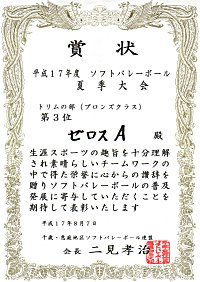 賞状
平成17年度 ソフトバレーボール
夏季大会
トリムの部(ブロンズクラス)
第3位
ゼロスA 殿
生涯スポーツの趣旨を十分理解
され素晴らしいチームワークの
中で得た栄誉に心からの讃辞を
贈りソフトバレーボールの普及
発展に寄与していただくことを
期待して表彰いたします
平成17年8月7日
千歳・恵庭地区ソフトバレーボール連盟
会長 二見孝治